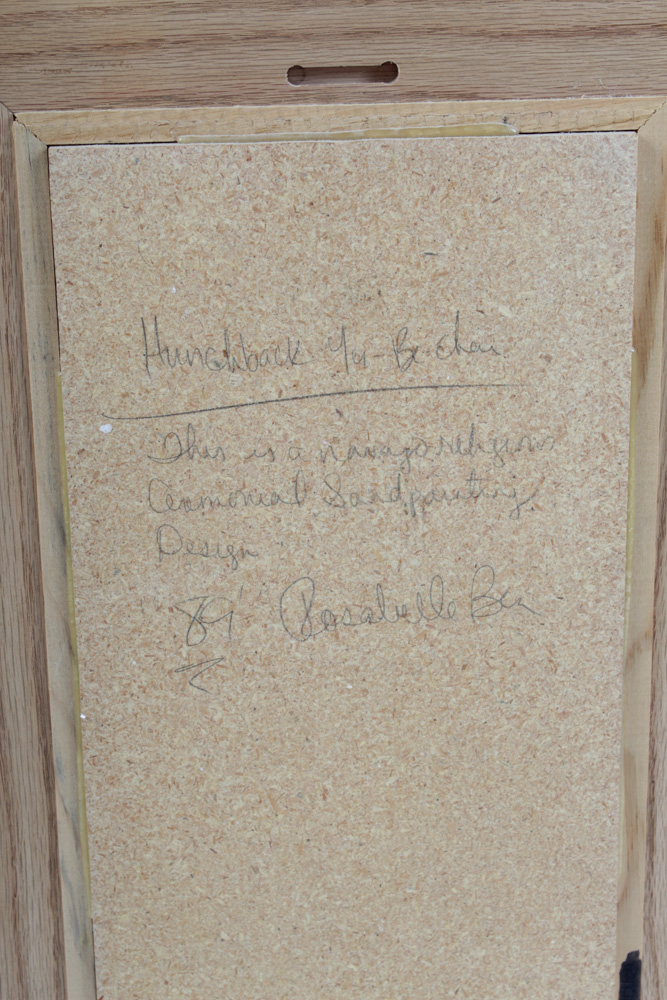 Hunchback Yei-Be-chai
This is a navajo religious
Ceremonial Sandpainting
Design
89' Rosabelle Ben